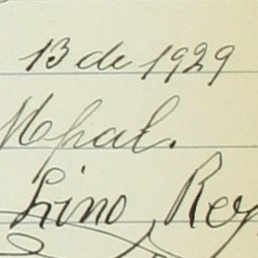 13 de 1929
Mpal.
Lino Rey